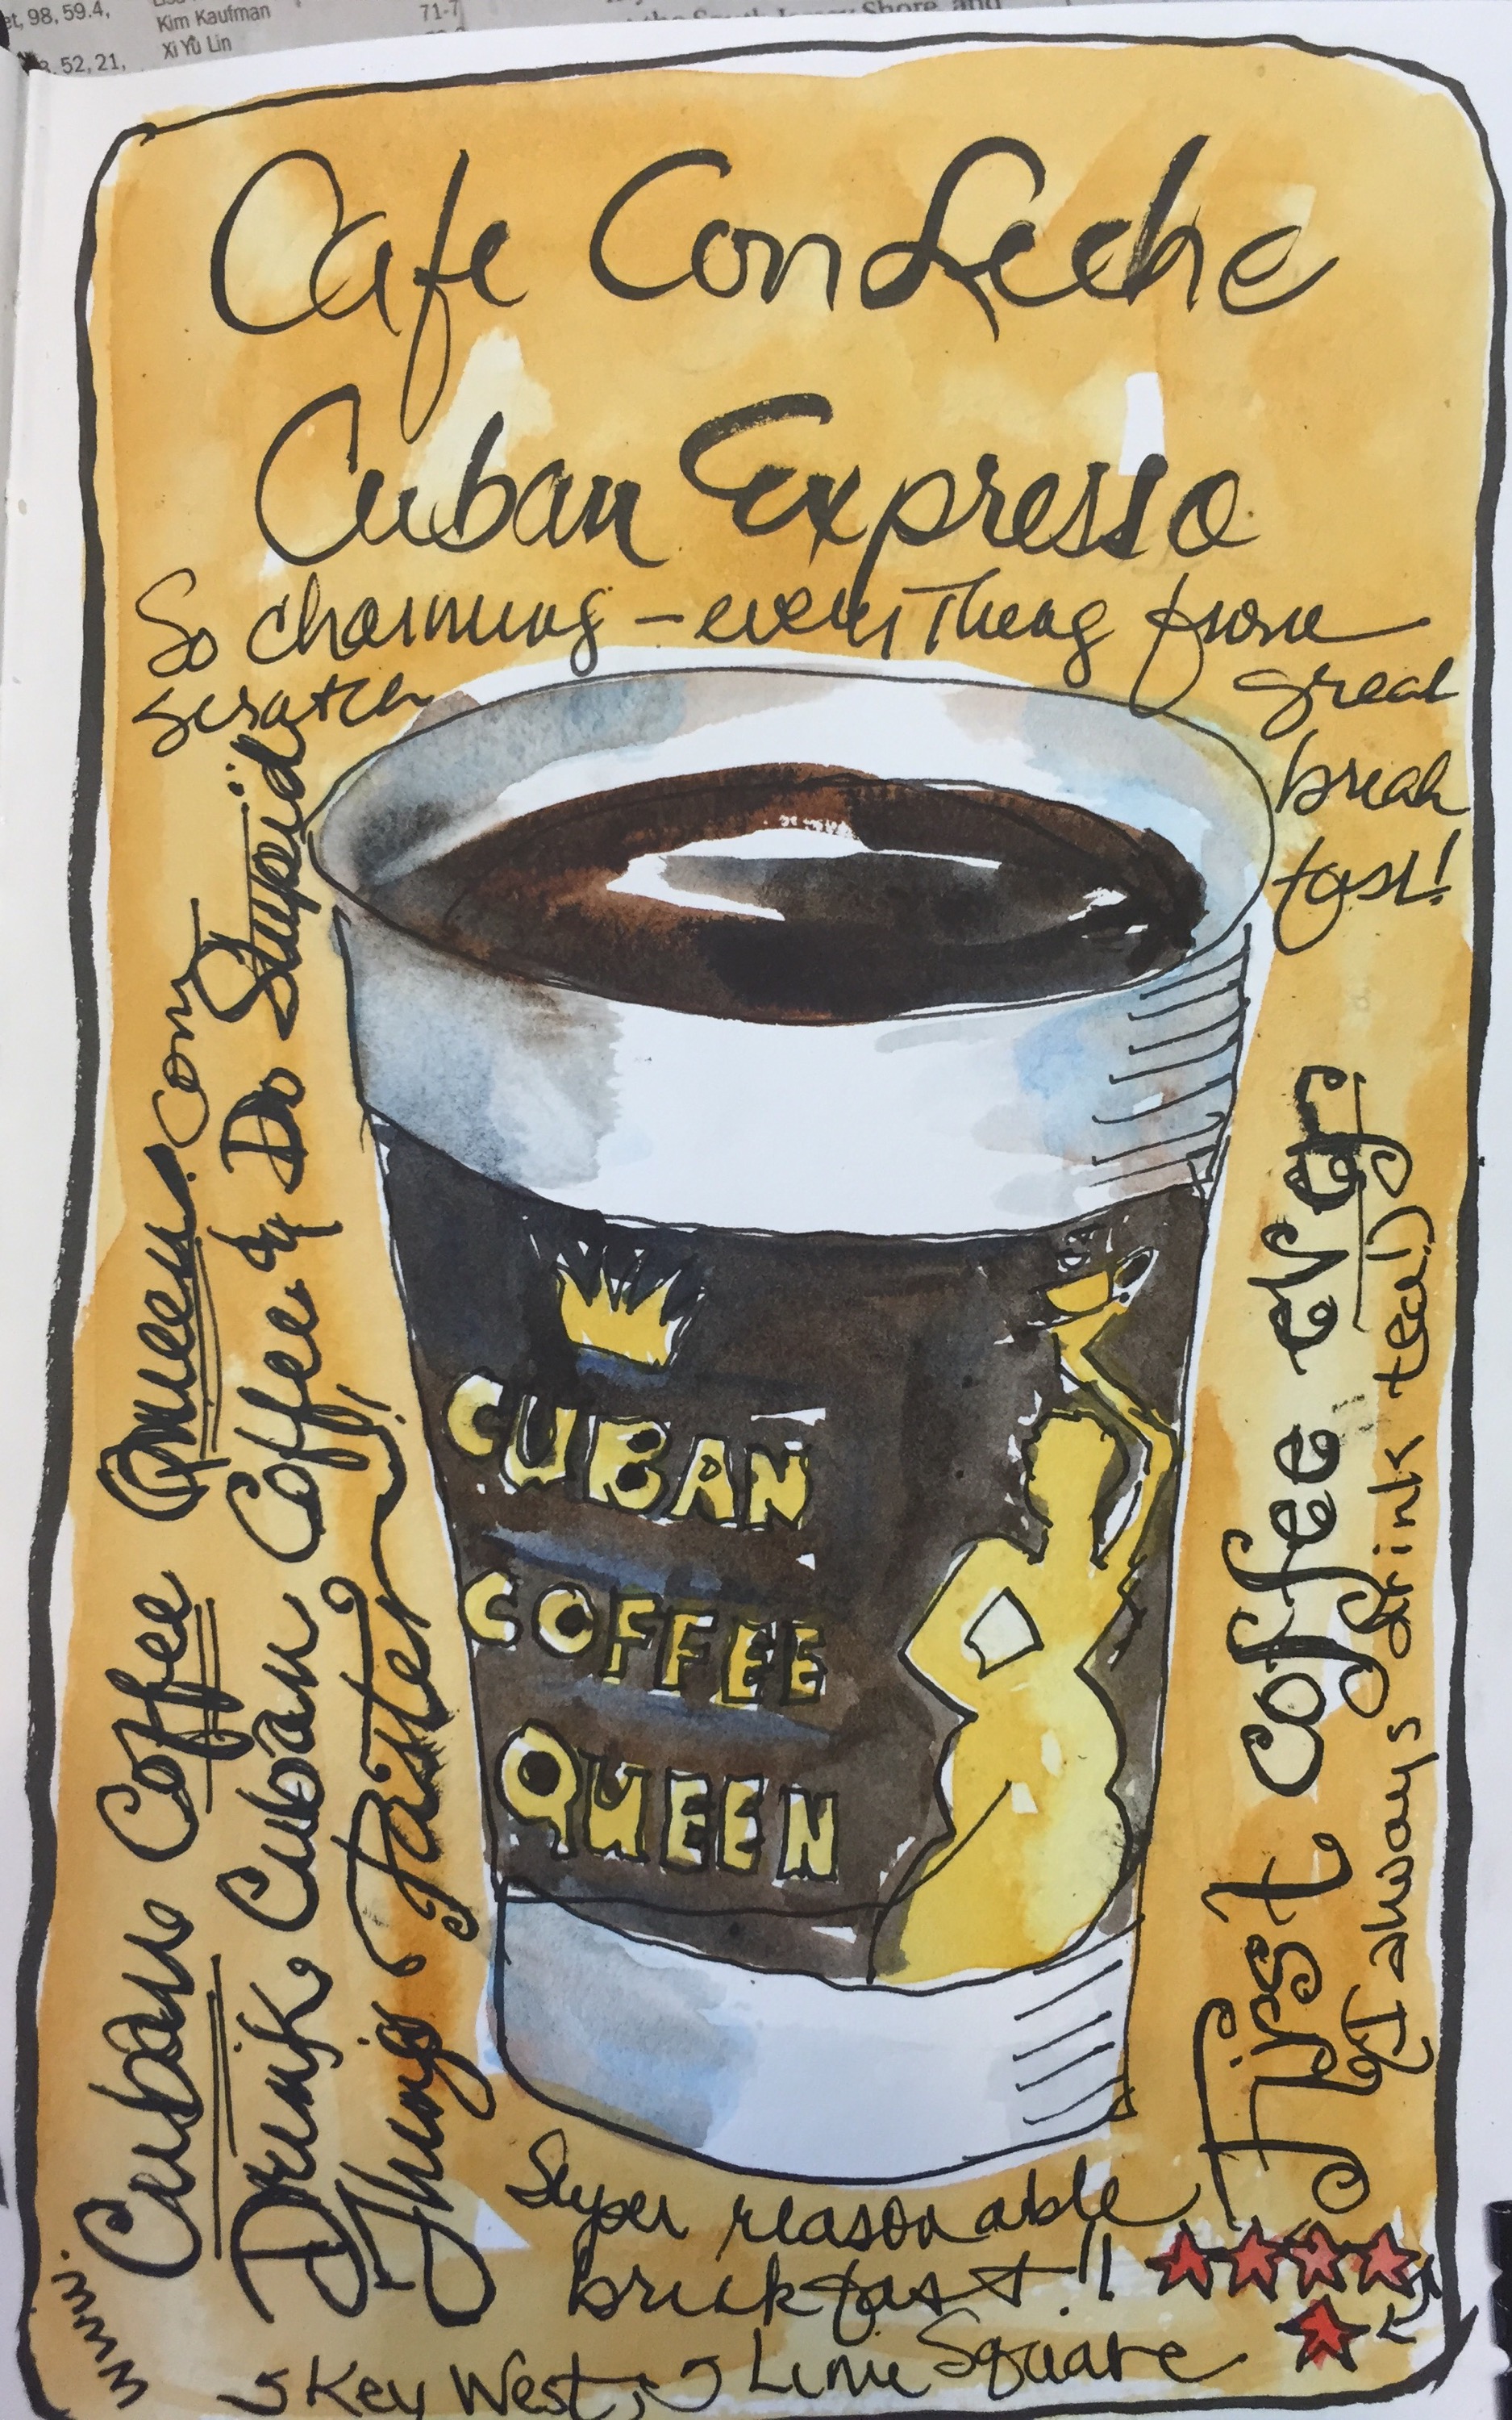 et, 98, 59.4,
Kim Kaufman
71-7
Xi Yu Lin
52, 21,
Shore, and
Cafe Con Leche
Cuban Expresso
So charming - everything from
scratch
great
break
fast!
www.
Cuban Coffee Queen.com
Drink Cuban Coffee & Do Stupid
Things Faster!
CUBAN
COFFEE
QUEEN
First coffee ever
(I always drink tea!)
Super reasonable
brekfast!!
Key West, Lime Square